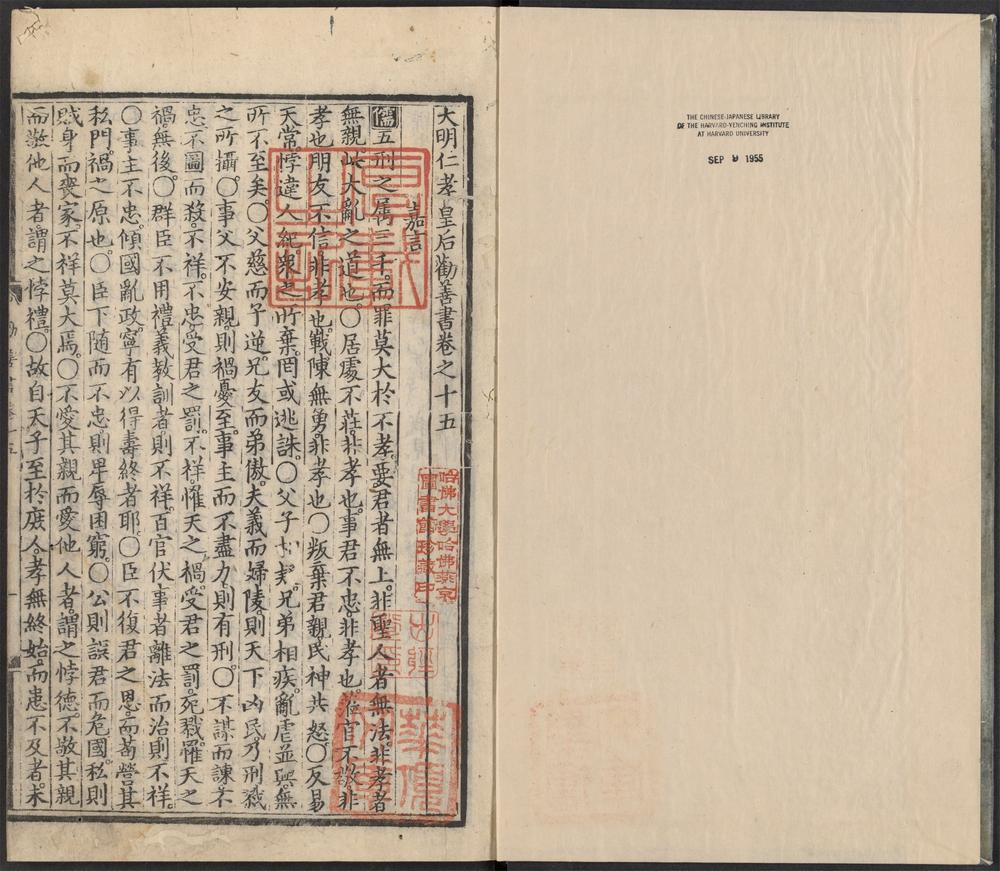 THE CHINESE-JAPANESE LIBRARY
OF THE HARVARD-YENCHING INSTITUTE
AT HARVARD UNIVERSITY
SEP 9 1955
大明仁孝皇后勸善書卷之十五
嘉言
儒五刑之属三千。而罪莫大於不孝。要君者無上。非聖人者無法。非孝者
無親。此大亂之道也。〇居處不莊。非孝也。事君不忠。非孝也。涖官不敬。非
孝也。朋友不信。非孝也。戰陳無勇。非孝也〇叛棄君親。民神共怒。〇反易
天常。悖違人紀。衆之所棄。罔或逃誅。〇父子相夷。兄弟相疾。亂虐並興。無
所不至矣。〇父慈而子逆。兄友而弟傲。夫義而婦陵。則天下凶民。乃刑戮
之所攝。〇事父不安親。則禍憂至。事主而不盡力。則有刑〇不謀而諫。不
忠。不圖而殺。不祥。不忠。受君之罰。不祥。罹天之禍。受君之罰。死戮。罹天之
禍。無後。〇群臣不用禮義教訓者。則不祥。百官伏事者離法而治。則不祥。
〇事主不忠。傾國亂政。寧有以得壽終者耶。〇臣不復君之恩。而苟營其
私門。禍之原也。〇臣下随而不忠。則卑辱困窮。〇公則誤君而危國。私則
賊身而喪家。不祥莫大焉。〇不愛其親而愛他人者。謂之悖德。不敬其親
而敬他人者。謂之悖禮。〇故自天子至於庶人。孝無終始。而患不及者。未
哈佛大學哈佛燕京
圖書館珍藏印